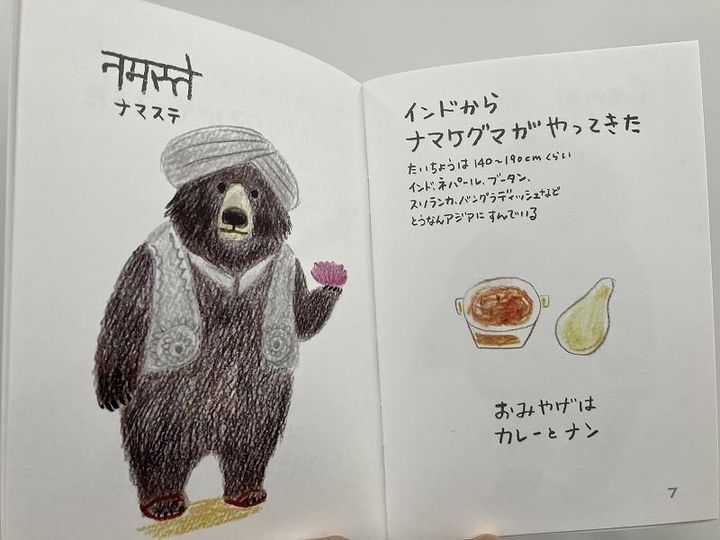 नमस्ते
ナマステ
インドから
ナマケグマがやってきた
たいちょうは 140~190cmくらい
インド、ネパール、ブータン、
スリランカ、バングラディッシュなど
とうなんアジアに すんでいる
おみやげは
カレーとナン
7